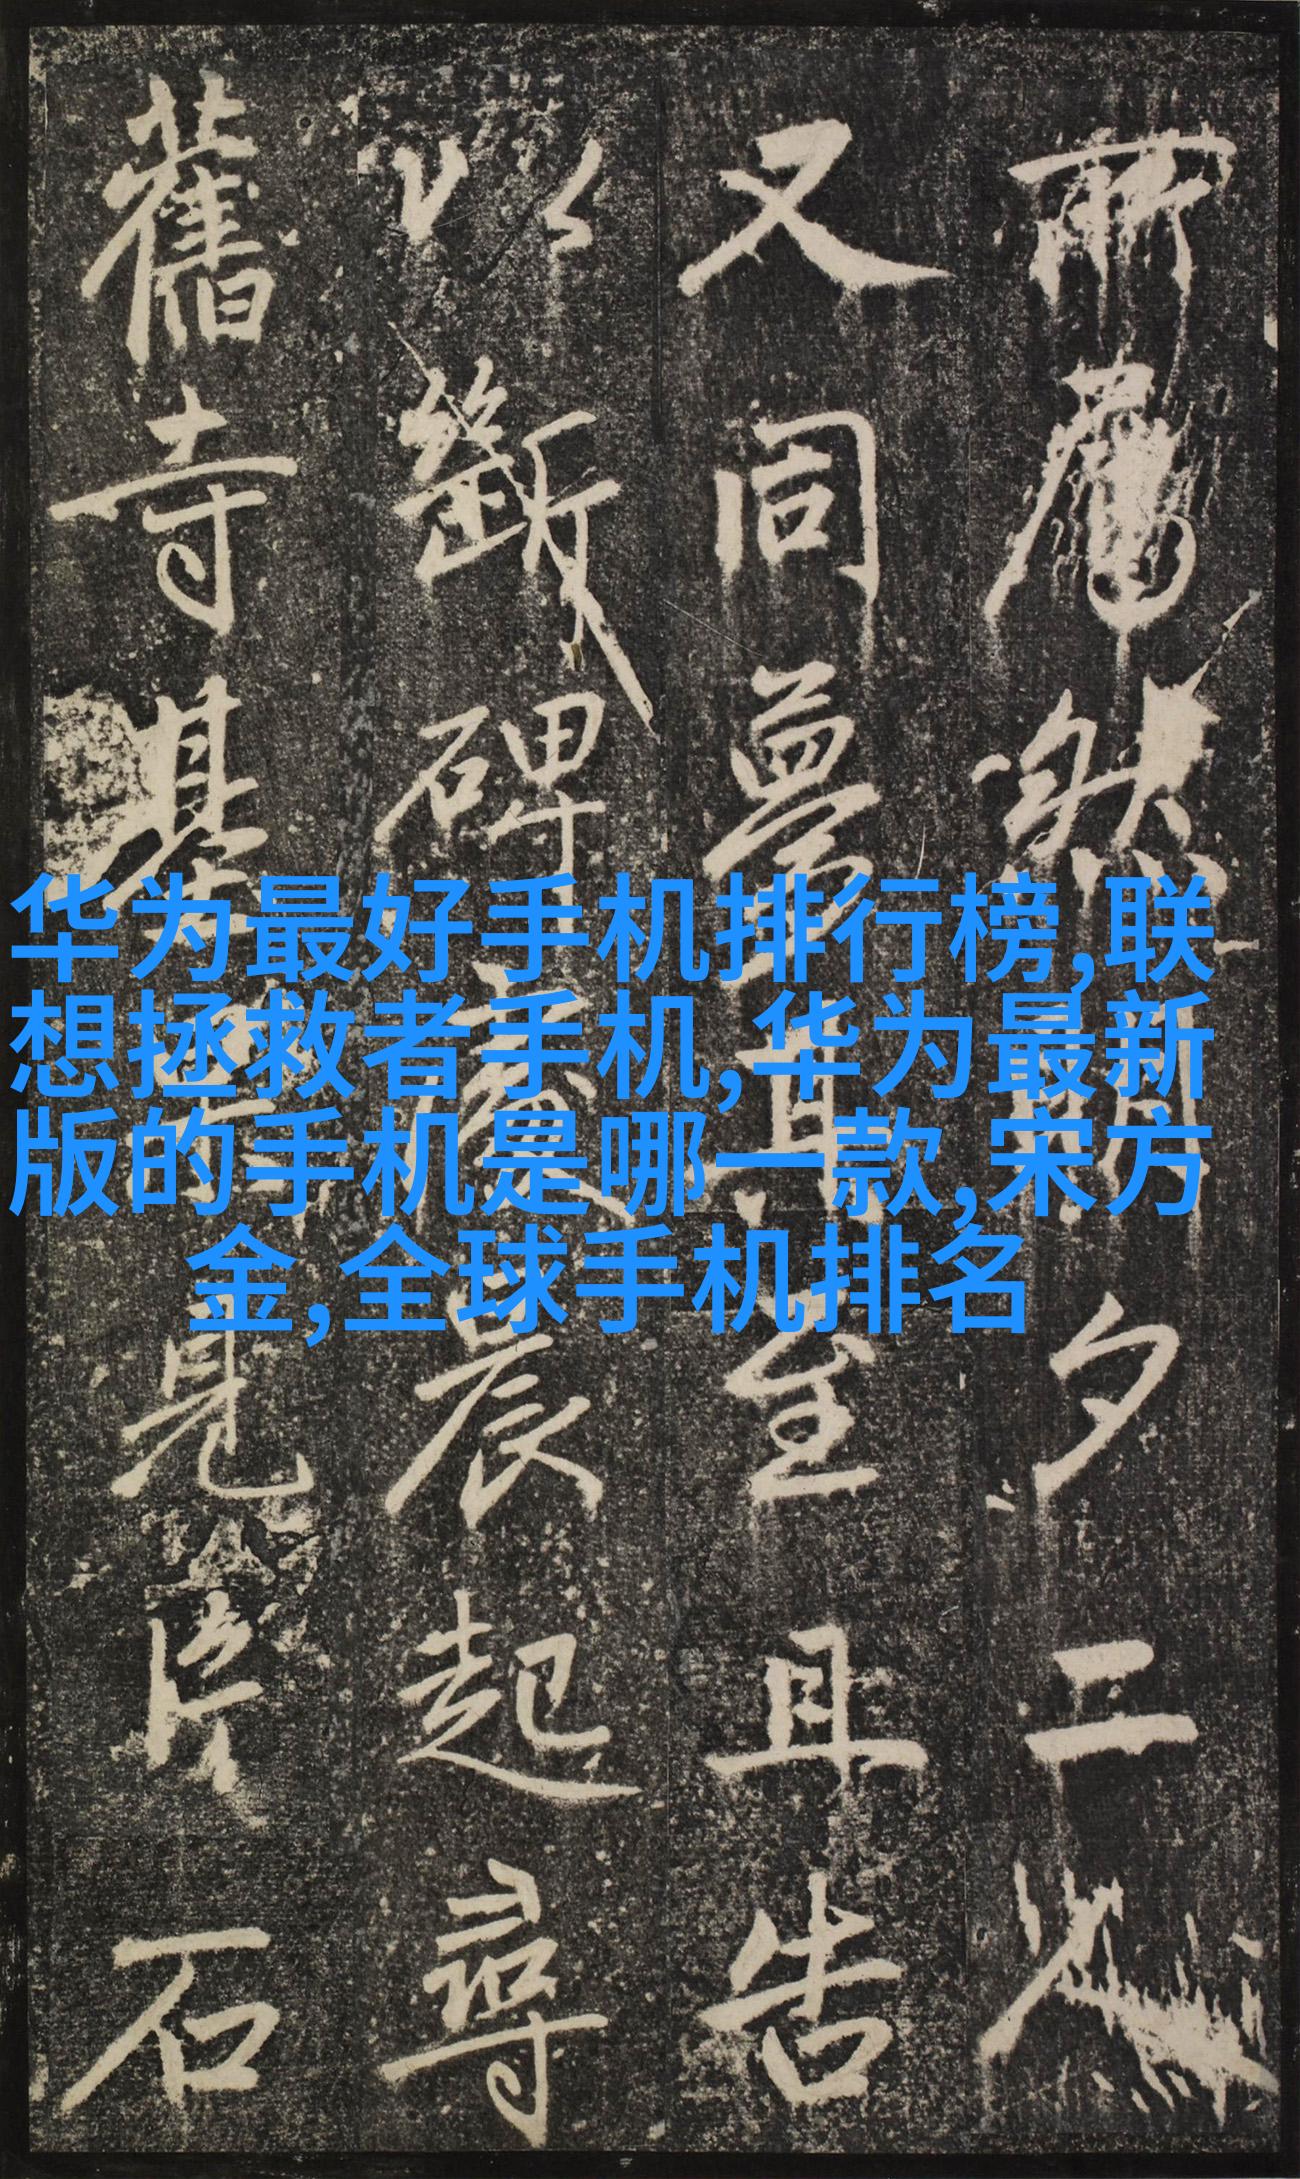 所然間夕二
又同夢至且告
以斷碑處晨起尋
舊寺基見片石
华为最好手机排行榜,联
想拯救者手机,华为最新
版的手机是哪一款,宋方
金,全球手机排名